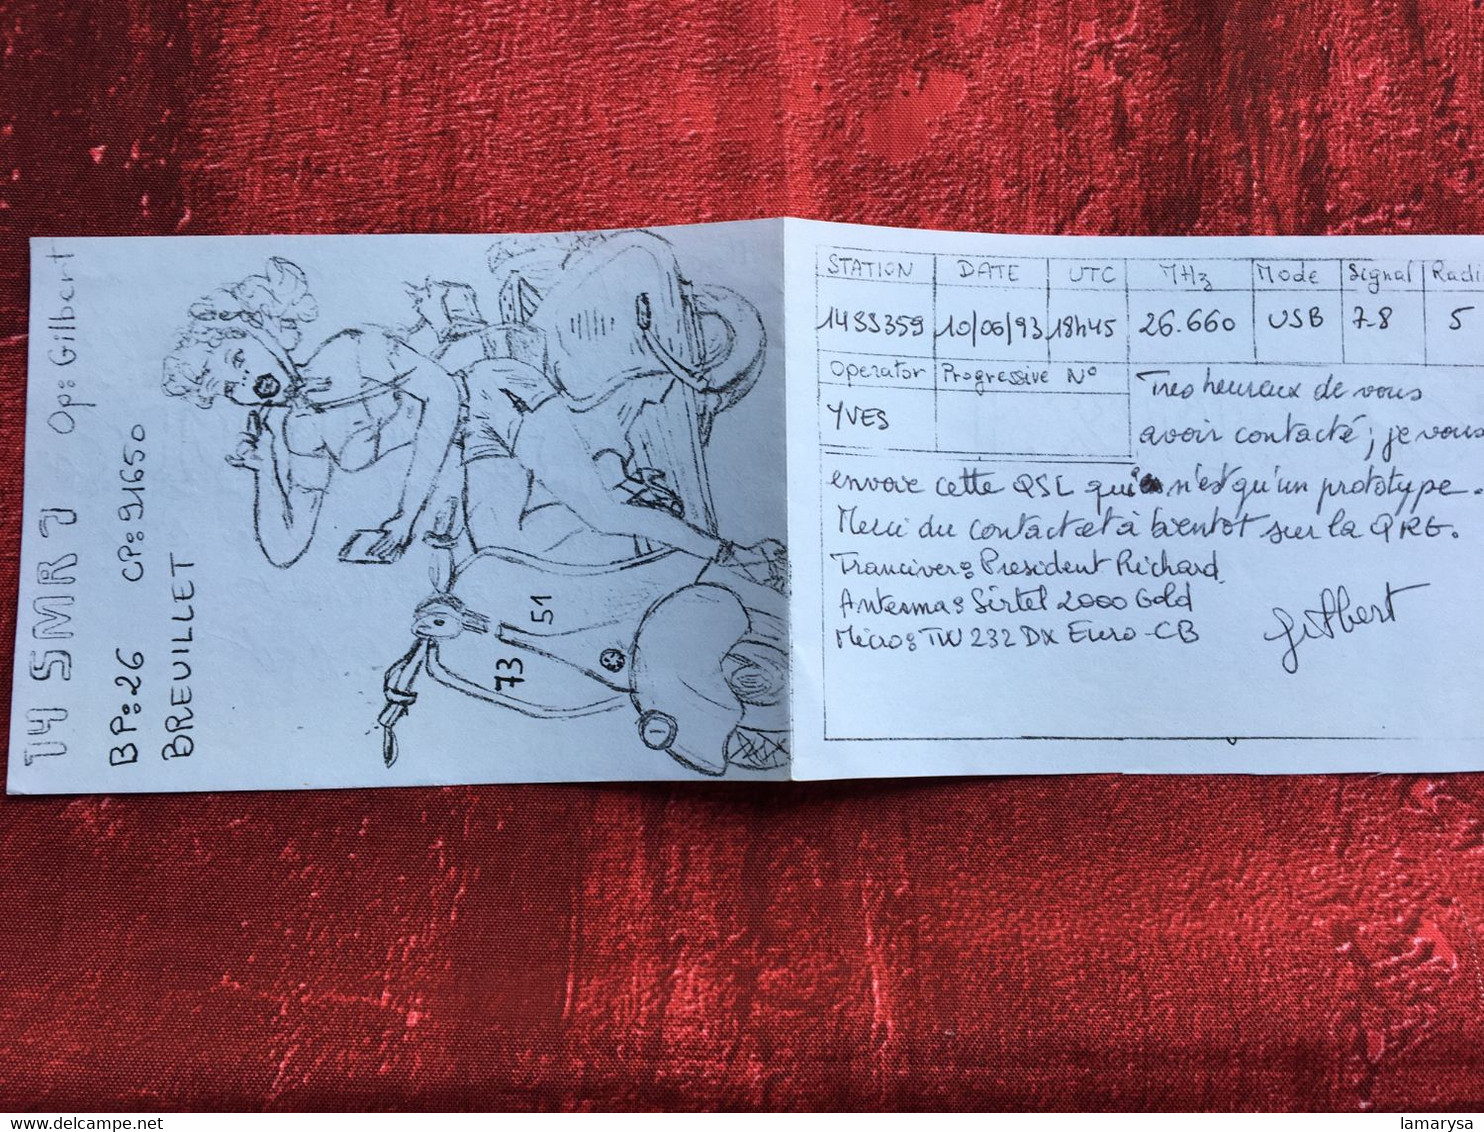 14 SMR 7 Op: Gilbert
BP: 26 CP: 91650
BREUILLET
73
51
STATION DATE UTC MHz Mode Signal Radi
14SS359 10/06/93 18h45 26.660 USB 7-8 5
Operator Progressive N°
YVES
Tres heureux de vous
avoir contacté ; je vous
envoie cette QSL qui n'est qu'un prototype.
Merci du contact et à bientot sur la QRG.
Tranciver: President Richard
Antenna: Sirtel 2000 Gold
Micro: TW 232 DX Euro-CB
Gilbert
lamarysa